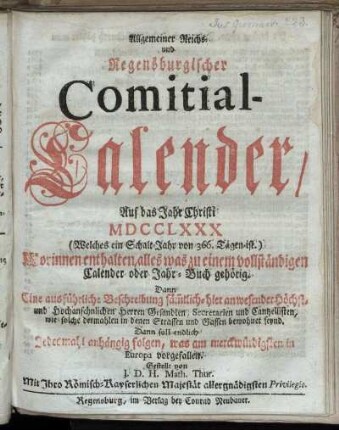 Allgemeiner Reichs-
und
Regensburgischer
Comitial-
Calender/
Auf das Jahr Christi
MDCCLXXX
(Welches ein Schalt-Jahr von 366. Tägen ist.)
Worinnen enthalten, alles was zu einem vollständigen
Calender oder Jahr-Buch gehörig.
Dann
Eine ausführliche Beschreibung säm̃tliche hier anwesender Höchst-
und Hochansehnlicher Herren Gesandten, Secretarien und Cantzellisten,
wie solche dermahlen in denen Strassen und Gassen bewohnet seynd.
Dann soll endlich
Jedesmahl anhängig folgen, was am merckwürdigsten in
Europa vorgefallen.
Gestellt von
J. D. H. Math. Thur.
Mit Ihro Römisch-Kayserlichen Majestät allergnädigsten Privilegio.
Regensburg, im Verlag bey Conrad Neubauer.